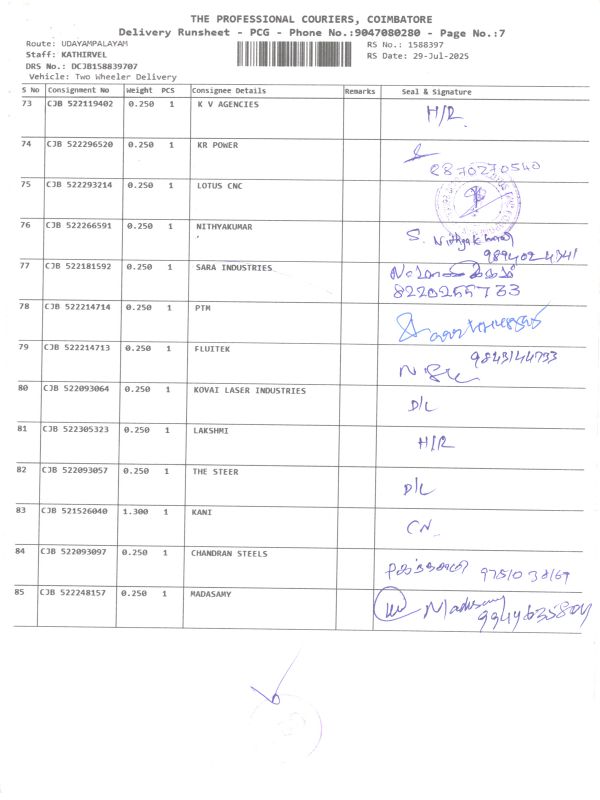 THE PROFESSIONAL COURIERS, COIMBATORE
Delivery Runsheet - PCG - Phone No.:9047080280 - Page No.:7
Route: UDAYAMPALAYAM
RS No.: 1588397
Staff: KATHIRVEL
RS Date: 29-Jul-2025
DRS No.: DCJB158839707
Vehicle: Two Wheeler Delivery
S No Consignment No Weight PCS Consignee Details Remarks Seal & Signature
73 CJB 522119402 0.250 1 K V AGENCIES H/R.
74 CJB 522296520 0.250 1 KR POWER
2870270540
75 CJB 522293214 0.250 1 LOTUS CNC
76 CJB 522266591 0.250 1 NITHYAKUMAR S. Nithyakumar
77 CJB 522181592 0.250 1 SARA INDUSTRIES
8220255733
78 CJB 522214714 0.250 1 PTM
79 CJB 522214713 0.250 1 FLUITEK 9843144733
80 CJB 522093064 0.250 1 KOVAI LASER INDUSTRIES D/L
81 CJB 522305323 0.250 1 LAKSHMI H/R
82 CJB 522093057 0.250 1 THE STEER D/L
83 CJB 521526040 1.300 1 KANI CN
84 CJB 522093097 0.250 1 CHANDRAN STEELS
85 CJB 522248157 0.250 1 MADASAMY Madasamy